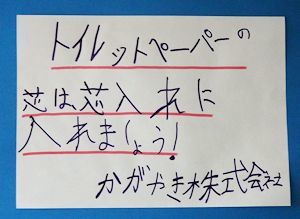 トイレットペーパーの
芯は芯入れに
入れましょう!
かがやき株式会社